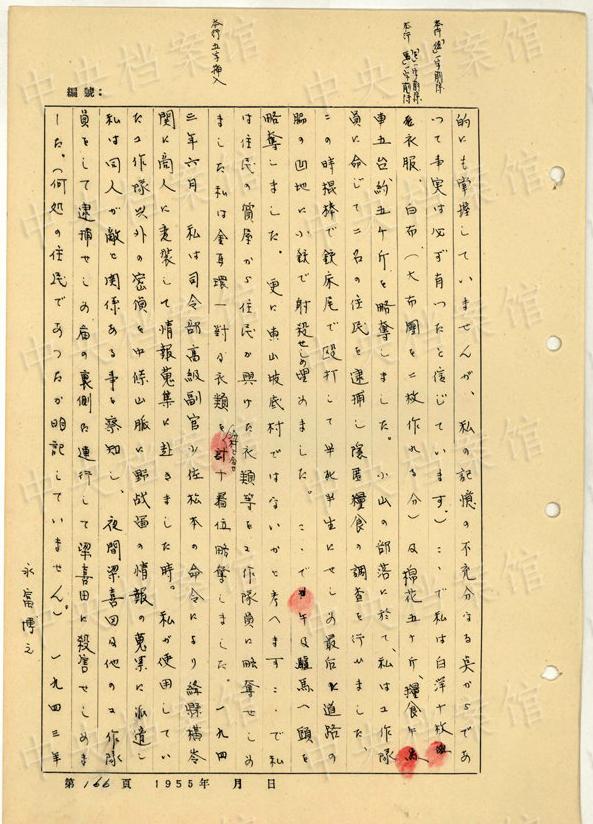 本行追一字削除
本行是一字削除
本行馬一字削除
本行五字挿入
編號：
的にも掌握していませんが、私の記憶の不充分なる点からであ
つて事実は必ず有つたと信じています）こゝで私は白洋十枚
と衣服、白布、（大布團を二枚作れる分）及棉花五ヶ斤、糧食
車五台約五ヶ斤を略奪しました。小山の部落に於て、私は工作隊
員に命じて二名の住民を逮捕し隠匿糧食の調査を行いました、
この時棍棒で銃床尾で殴打して半死半生にせしめ最后に道路の
脇の凹地に小銃で射殺せしめ埋めました。こゝで牛及驢馬八頭を
略奪しました。更に東山坡底村ではないかと考へますこゝで私
は住民の質屋から住民が興けた衣類等を工作隊員に略奪せしめ
ました私は金耳環一対及衣類を計十着位略奪しました。一九四
三年六月 私は司令部高級副官少佐松本の命令により絳縣横岺
関に商人に変装して情報蒐集に赴きました時。私が使用してい
た工作隊以外の密偵を中條山脈に野战軍の情報の蒐累に派遣し
私は同人が敵と関係ある事を察知し、夜間梁喜田及他の工作隊
員をして逮捕せしめ廟の裏側に連行して梁喜田に殺害せしめま
した。（何処の住民であつたか明記していません）。一九四三年
永富博之
第166頁 1955年 月 日
中央档案馆